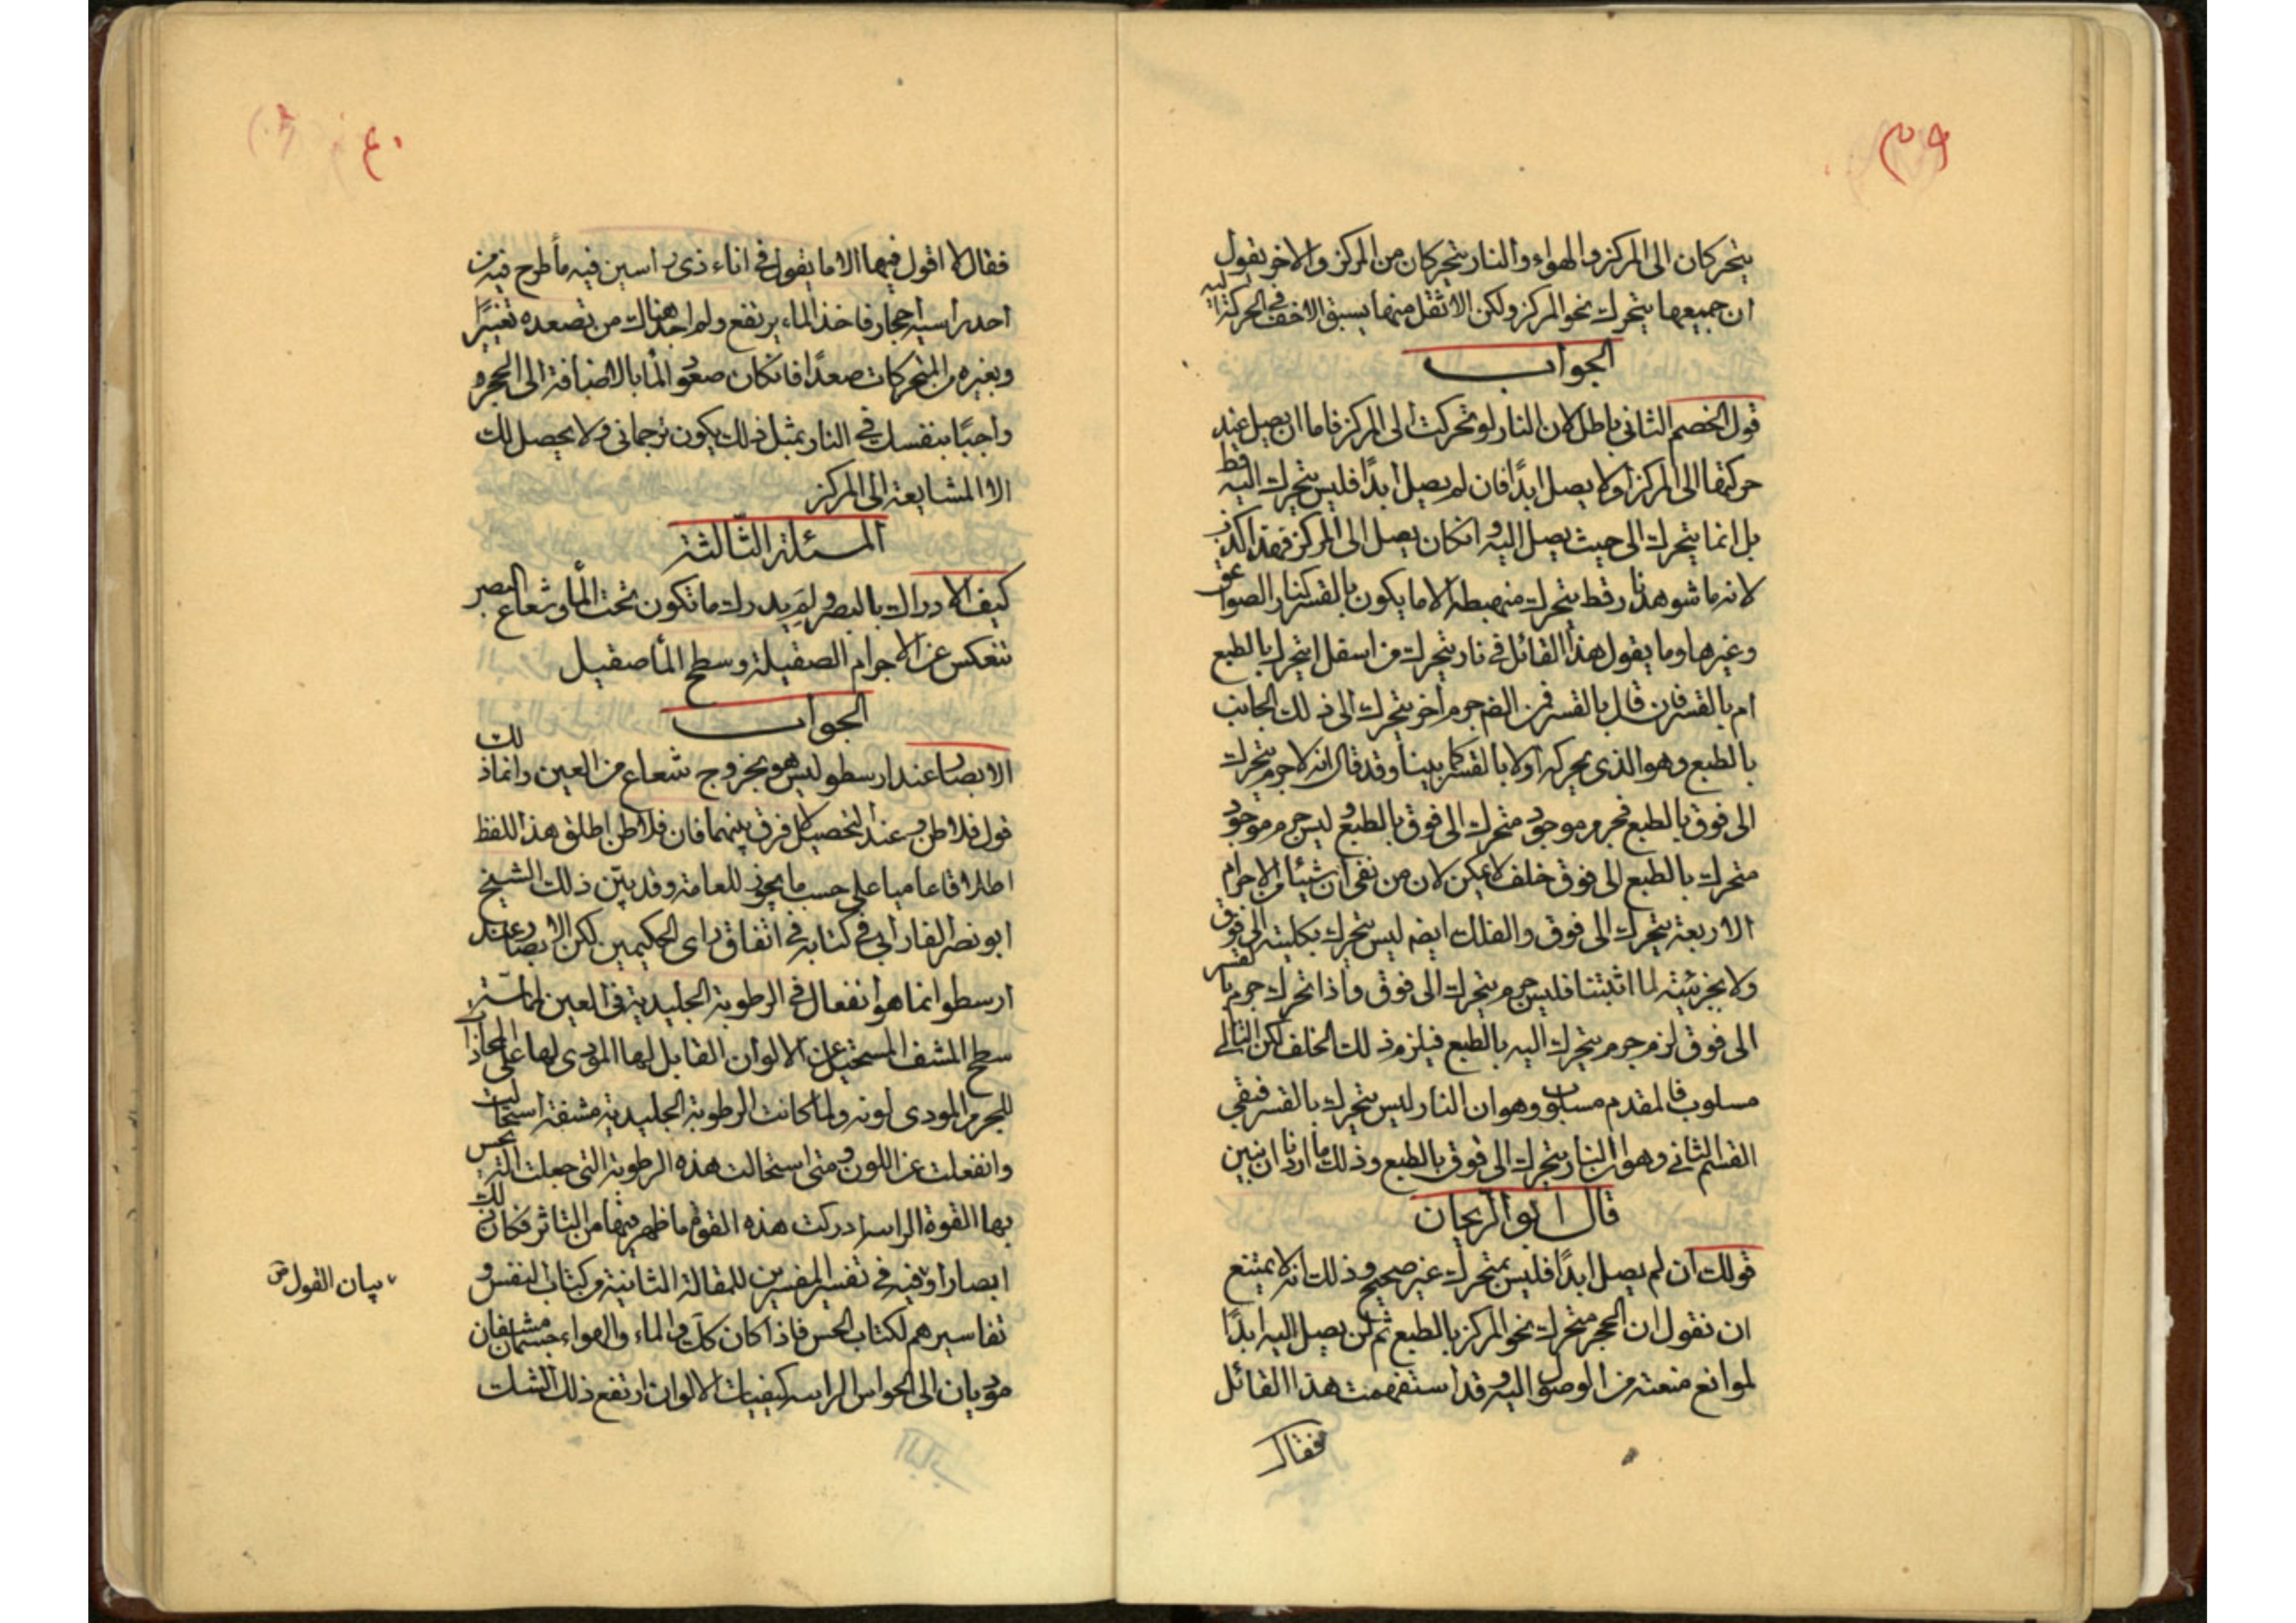 ٣٩
يتحركان الى المركز والهواء والنار يتحركان من المركز والاخر يقول
ان جميعها يتحرك نحو المركز ولكن الاثقل منها يسبق الاخف في الحركة اليه
الجواب
قول الخصم الثاني باطل لان النار لو تحركت الى المركز فاما ان يصل عند
حركتها الى المركز اولا يصل ابدًا فان لم يصل ابدًا فليس يتحرك اليه قط
بل انما يتحرك الى حيث يصل اليه وانكان يصل الى المركز فهذا كذب
لانه ما شوهد نار قط يتحرك منهبطه الا ما يكون بالقسر كنار الصواعق
وغيرها وما يقول هذا القائل في نار يتحرك من اسفل ايتحرك بالطبع
ام بالقسر فان قال بالقسر فمن جرم اخر يتحرك الى ذلك الجانب
بالطبع وهو الذي يحركه اولا بالقسر كما بينا وقد قال انه لا جرم يتحرك
الى فوق بالطبع فجرم موجود متحرك الى فوق بالطبع وليس جرم موجود
متحرك بالطبع الى فوق خلف لا يمكن لان من نفى ان شيئا من الاجرام
الاربعة يتحرك الى فوق والفلك ايضم ليس يتحرك بكليته الى فوق
ولا بجزئيته لما اثبتنا فليس جرم يتحرك الى فوق واذا تحرك جرم بالقسر
الى فوق لزم جرم يتحرك اليه بالطبع فيلزم ذلك الخلف لكن التالي
مسلوب فالمقدم مسلوب وهو ان النار ليس يتحرك بالقسر فبقي
القسم الثاني وهو ان النار يتحرك الى فوق بالطبع وذلك ما اردنا ان نبين
قال ابو الريحان
قولك ان لم يصل ابدًا فليس بمتحرك غير صحيح وذلك انه لا يمتنع
ان نقول ان الحجر متحرك نحو المركز بالطبع ثم لن يصل اليه ابدًا
لموانع منعته من الوصول اليه وقد استفهمت هذا القائل
فقال
٤٠
فقال لا اقول فيها الا ما يقول في اناء ذي راسين فيه ماء طرح فيه من
احد راسيه احجار فاخذ الماء يرتفع ولم اجد هناك من تصعده تغيرًا
وبغيره من المتحركات صعدًا فانكان صعود الماء بالاضافة الى الحجر
واجبًا بنفسك في النار بمثل ذلك يكون ترجماني ولا يحصل لك
الا المشايعة الى المركز
المسئلة الثّالثة
كيف الادراك بالبصر ولم يدرك ما تكون تحت الماء وشعاع البصر
تنعكس عن الاجرام الصقيلة وسطح الماء صقيل
الجواب
الابصار عند ارسطو ليس هو بخروج شعاع من العين وانما ذلك
قول فلاطن وعند التحصيل لا فرق بينهما فان فلاطن اطلق هذا اللفظ
اطلاقا عاميا على حسب ما يجوز للعامة وقد بيّن ذلك الشيخ
ابو نصر الفارابي في كتابه في اتفاق راي الحكيمين لكن الابصار عند
ارسطو انما هو انفعال في الرطوبة الجليدية في العين لماسّة
سطح المشف المستحيل عن الالوان القابل لها المودي لها على المحاذاة
للجرم المودى لونه ولما كانت الرطوبة الجليدية مشفة استحالت
وانفعلت عن اللون ومتى استحالت هذه الرطوبة التي جعلت التي يحس
بها القوة الراسه ادركت هذه القوة ما ظهر فيها من التاثر فكان ذلك
ابصارا وفيه في تفسير المفسرين للمقالة الثانية من كتاب النفس و
بيان القول ص
تفاسيرهم لكتاب الحس فاذا كان كل من الماء والهواء جسمان مشفان
موديان الى الحواس الراسه كيفيات الالوان ارتفع ذلك الشك